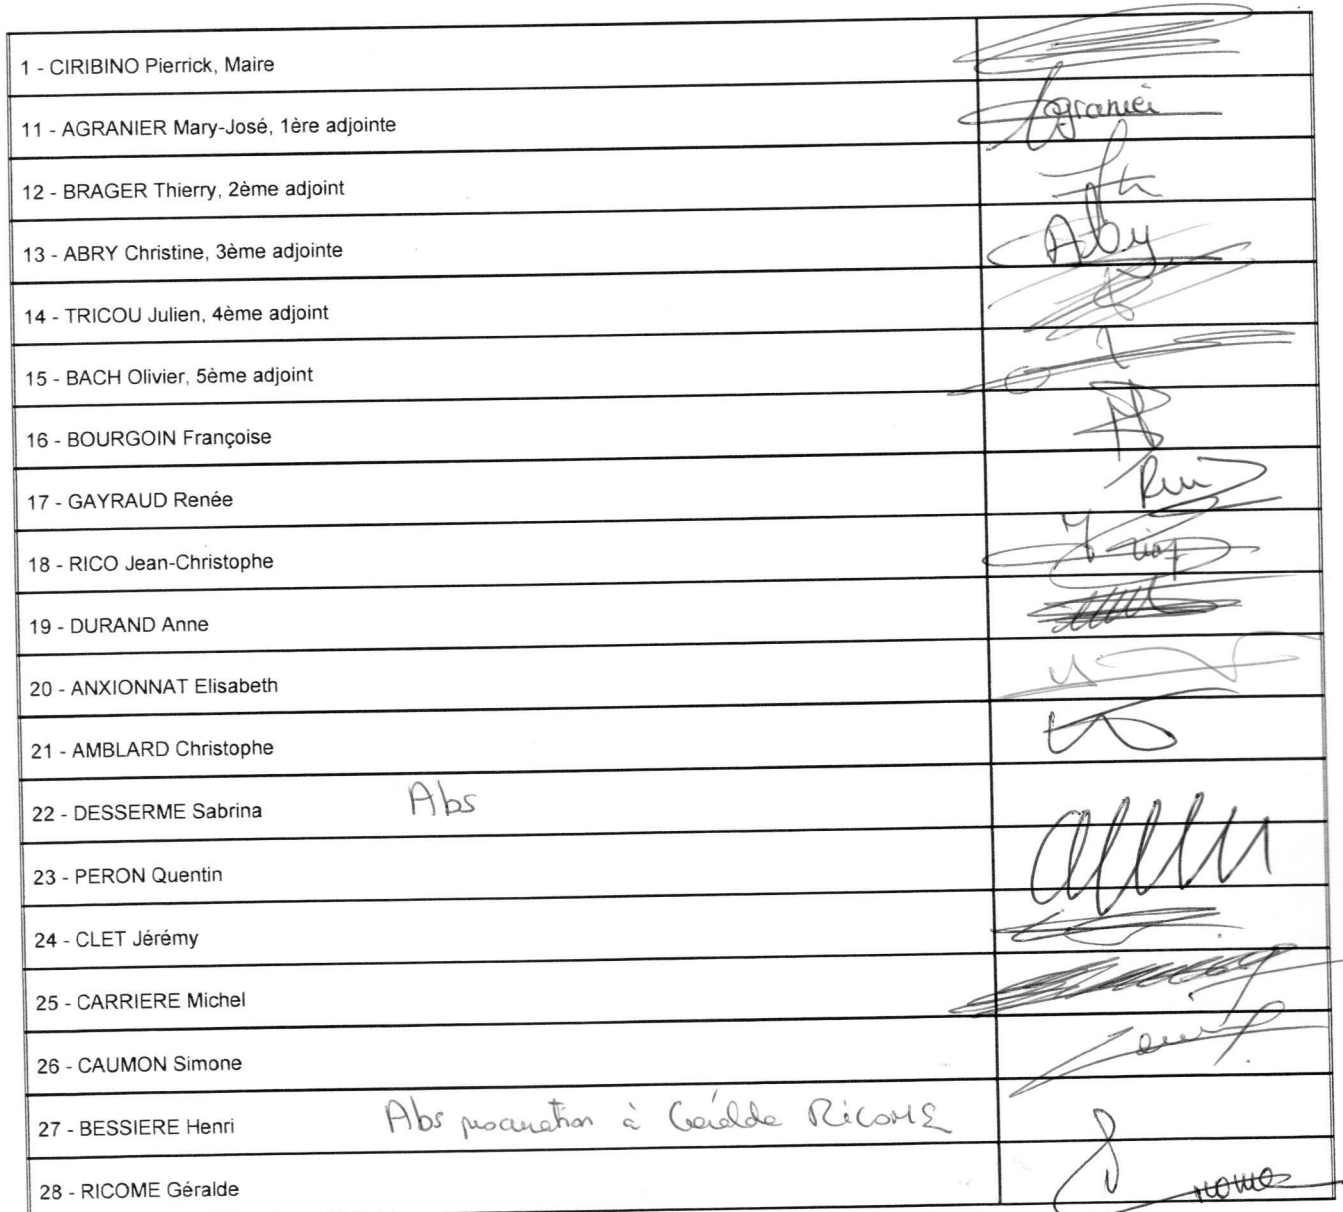 1 - CIRIBINO Pierrick, Maire
11 - AGRANIER Mary-José, 1ère adjointe
Agranier
12 - BRAGER Thierry, 2ème adjoint
13 - ABRY Christine, 3ème adjointe
Abry
14 - TRICOU Julien, 4ème adjoint
15 - BACH Olivier, 5ème adjoint
16 - BOURGOIN Françoise
17 - GAYRAUD Renée
18 - RICO Jean-Christophe
19 - DURAND Anne
20 - ANXIONNAT Elisabeth
21 - AMBLARD Christophe
22 - DESSERME Sabrina Abs
23 - PERON Quentin
24 - CLET Jérémy
25 - CARRIERE Michel
26 - CAUMON Simone
27 - BESSIERE Henri Abs procuration à Géralde RICOME
28 - RICOME Géralde